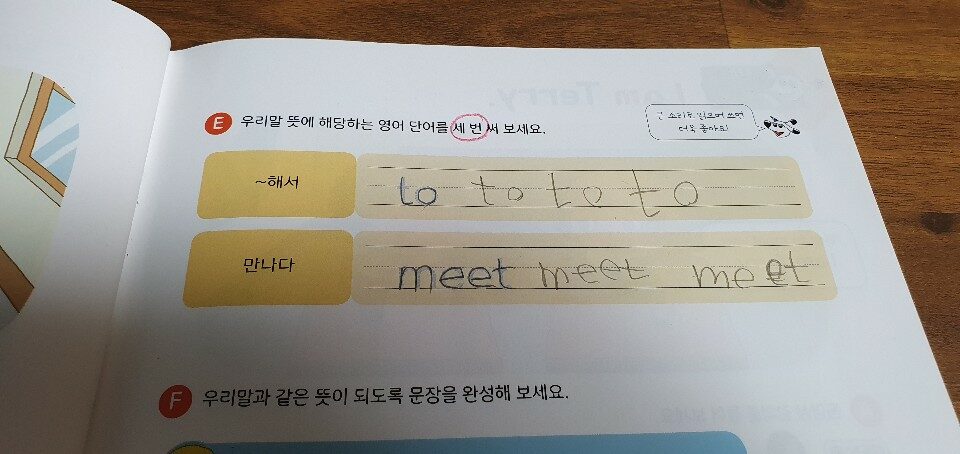 E 우리말 뜻에 해당하는 영어 단어를 세 번 써 보세요.
소리로 읽으며 쓰면
더욱 좋아요!
~해서
to to to to
만나다
meet meet meet
F 우리말과 같은 뜻이 되도록 문장을 완성해 보세요.